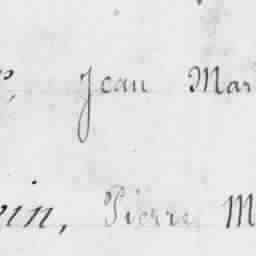 Jean Mar
in, Pierre M